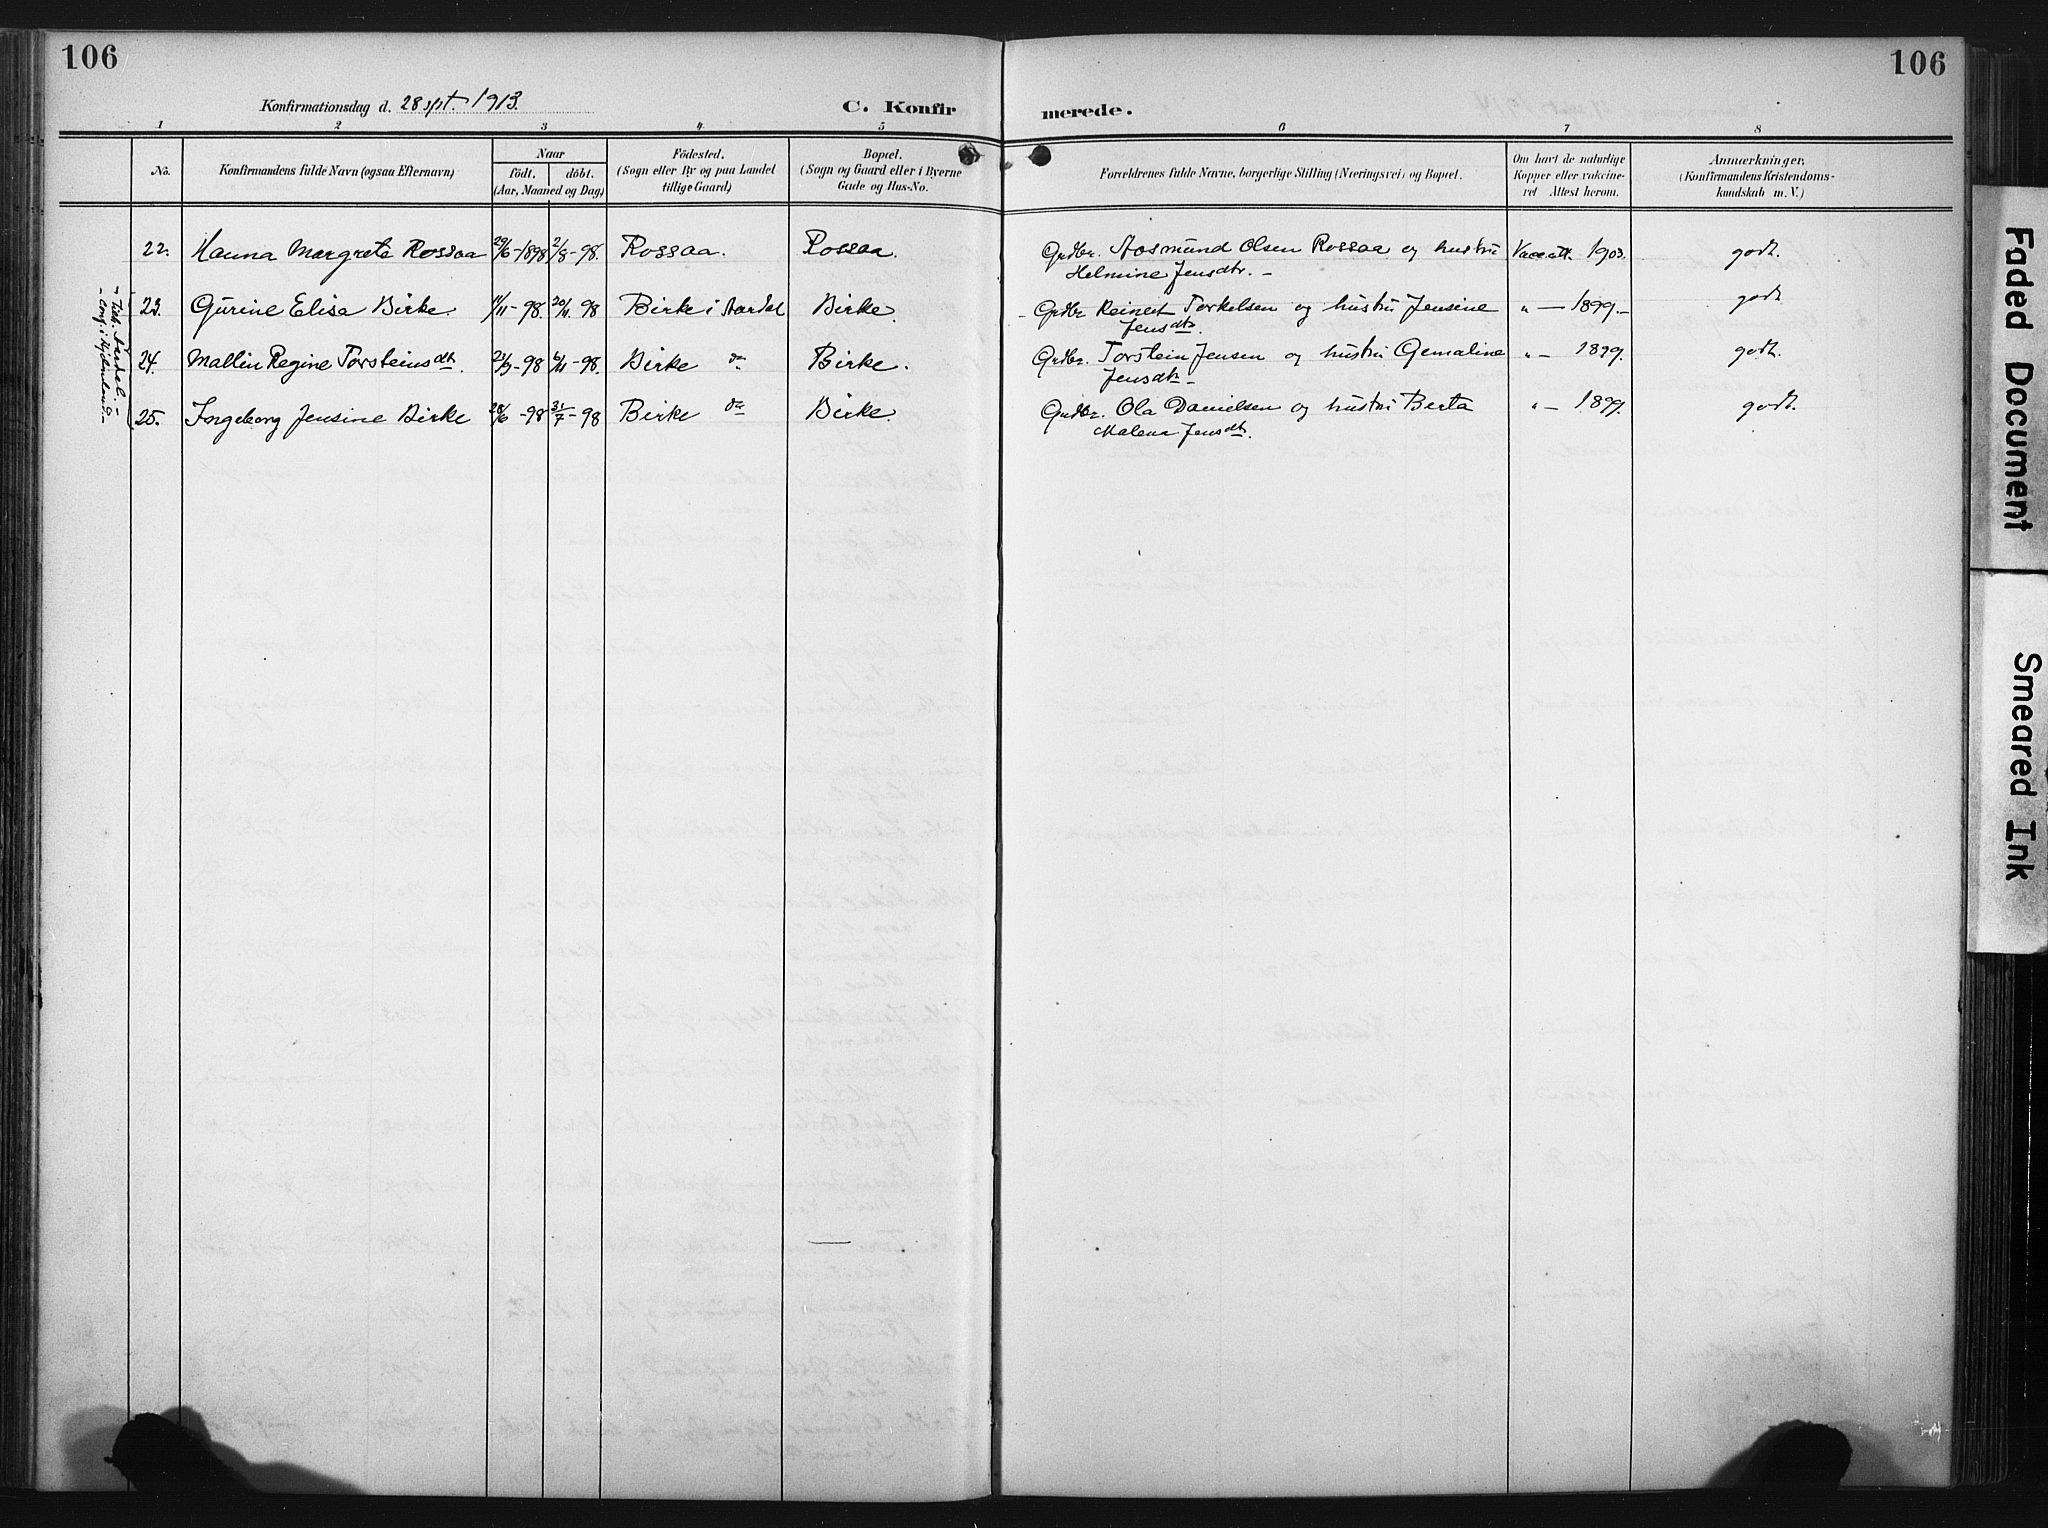 106
106
Konfirmationsdag d. 28 spt. 1913.
C. Konfirmerede.
1 2 3 4 5 6 7 8
No.
Konfirmandens fulde Navn (ogsaa Efternavn)
Naar
födt. döbt.
(Aar, Maaned og Dag)
Födested.
(Sogn eller By og paa Landet
tillige Gaard)
Bopæl.
(Sogn og Gaard eller i Byerne
Gade og Hus-No.
Forældrenes fulde Navne, borgerlige Stilling (Næringsvei) og Bopæl.
Om havt de naturlige
Kopper eller vaccine-
ret Attest herom.
Anmærkninger,
(Konfirmandens Kristendoms-
kundskab m. V.)
22. Hanna Margrete Rossaa 29/6-1898 2/8-98. Rossaa. Rossaa Grdbr. Aasmund Olsen Rossaa og hustru Vacc.att. 1903. godt.
Helmine Jensdtr. -
23. Gurine Elisa Birke. 1/11-98. 20/11 98 Birke i Aardal Birke. Grdbr. Reinert Torkelsen og hustru Jensine " — 1899.- godt
Jensdtr.
24. Mallin Regine Torsteinsdtr. 21/9-98 6/11-98. Birke do Birke. Grdbr. Torstein Jensen og hustru Gemaline " — 1899. godt.
Jensdtr -
25. Ingeborg Jensine Birke 28/6-98 31/7-98 Birke do Birke. Grdbr. Ola Danielsen og hustru Berta " — 1899. godt.
Malena Jensdtr.
Aardal. -
Faded Document
Smeared Ink